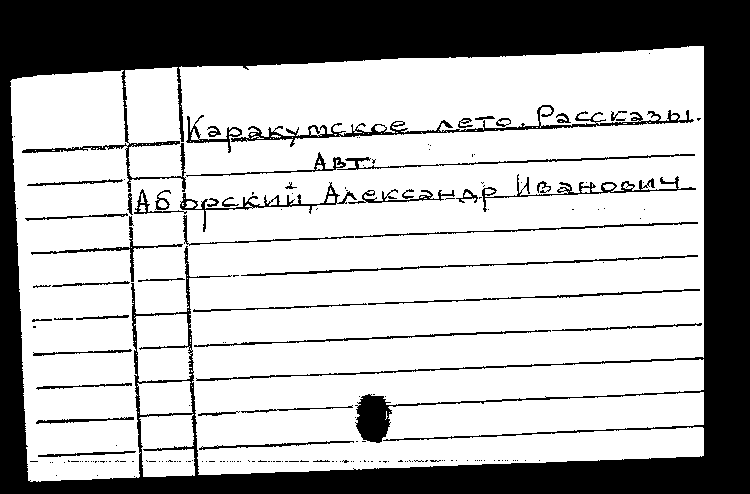 Каракумское лето. Рассказы.
Авт:
Аборский, Александр Иванович